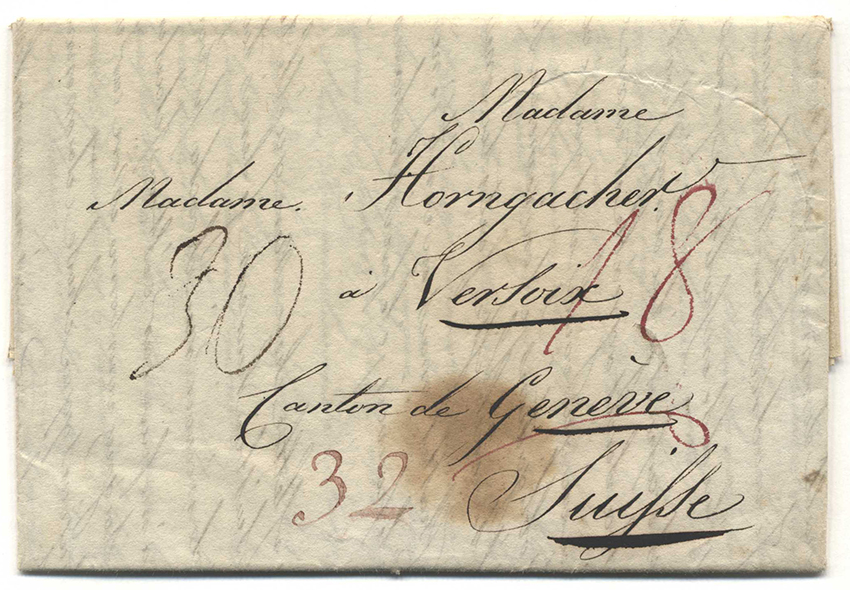 Madame
Madame. Horngacher.
à Versoix
18
30
Canton de Genève
32
Suisse